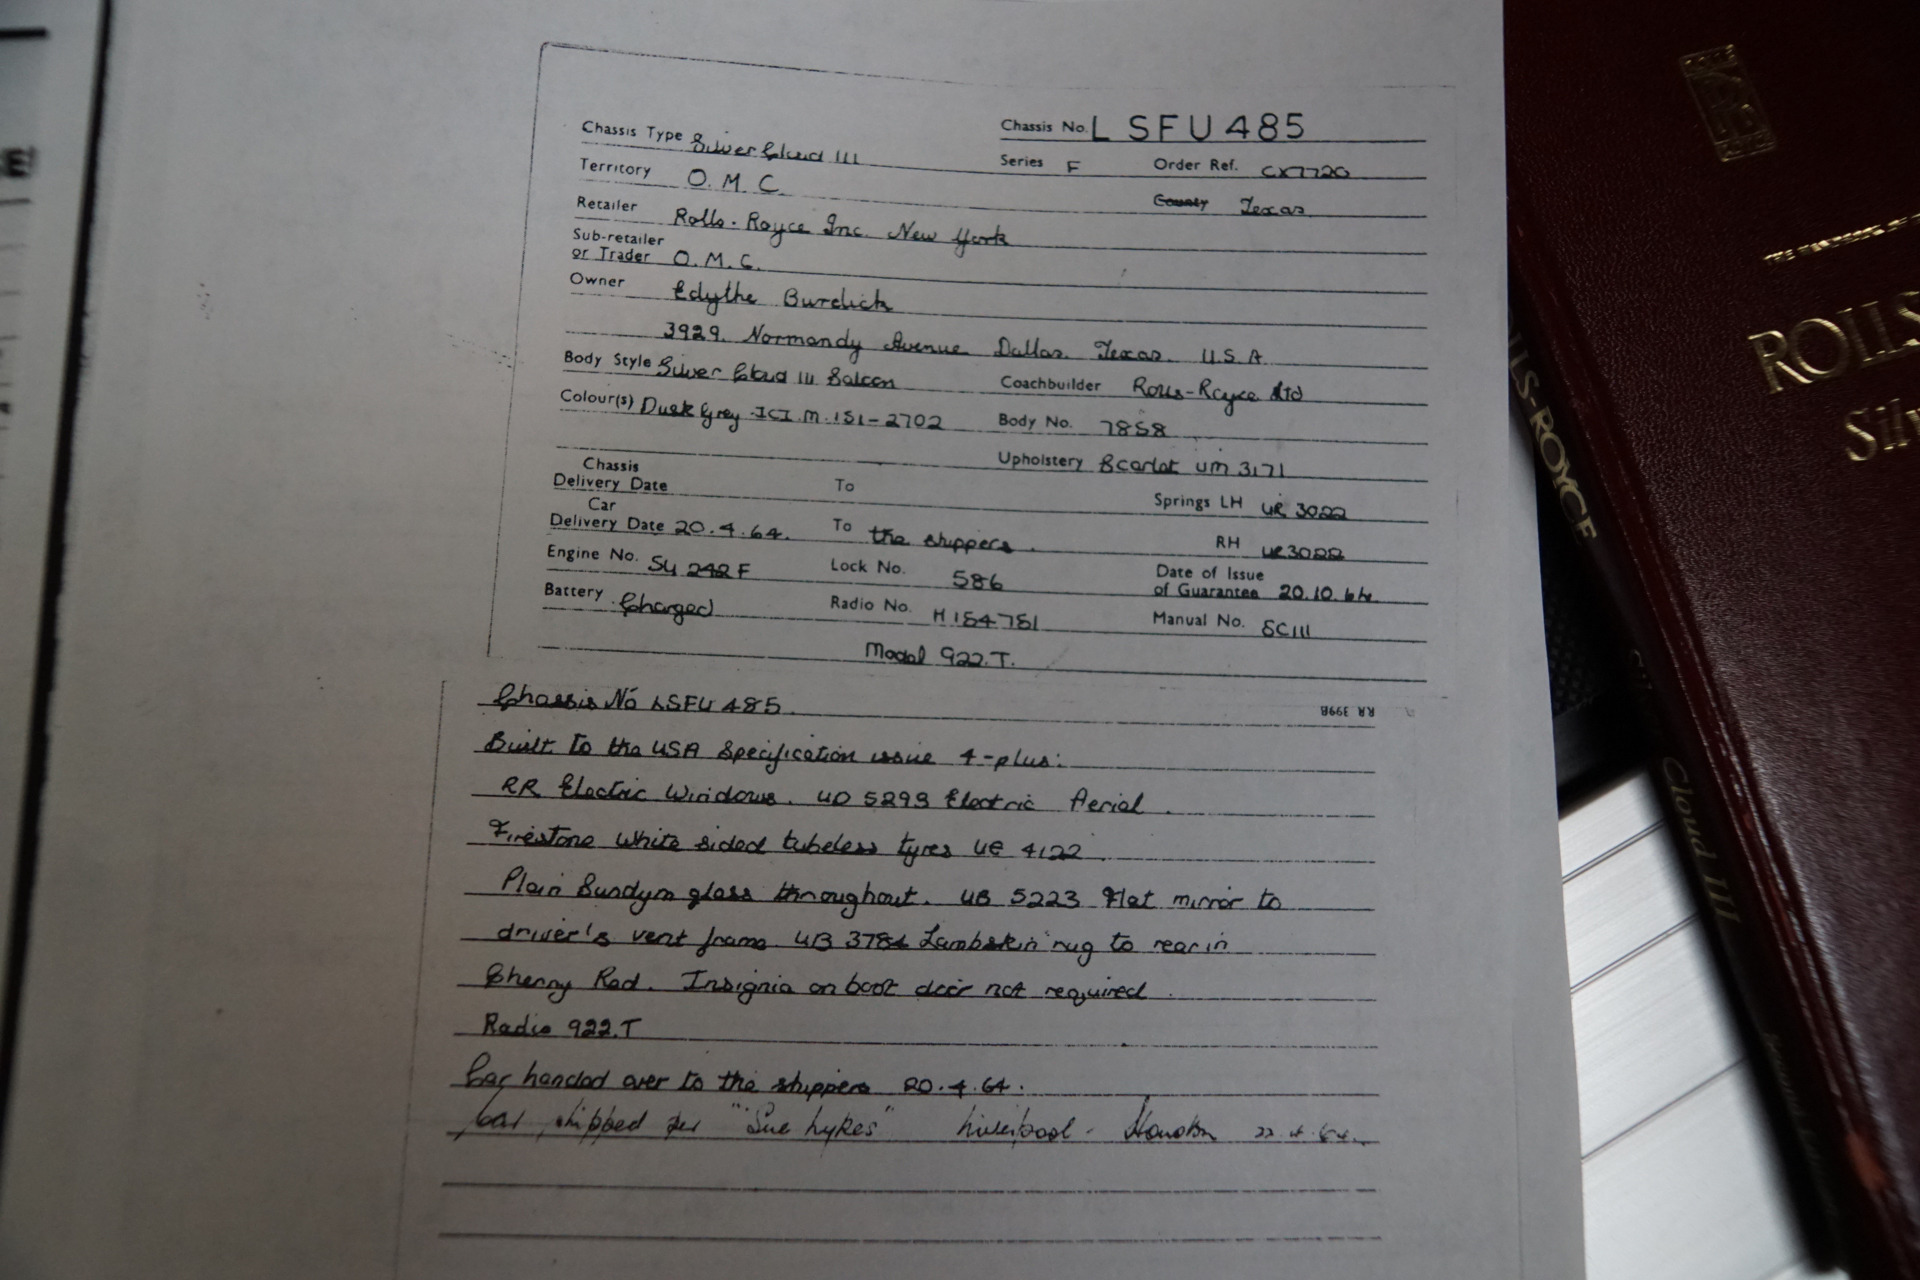 Chassis Type Silver Cloud III Chassis No. LSFU485
Series F Order Ref. CX7720
Territory O.M.C. County Texas
Retailer Rolls-Royce Inc. New York
Sub-retailer
or Trader O.M.C.
Owner Edythe Burdick
3929. Normandy Avenue Dallas. Texas. U.S.A.
Body Style Silver Cloud III Saloon Coachbuilder Rolls-Royce Ltd
Colour(s) Dusk Grey ICI.M.151-2702 Body No. 7858
Upholstery Scarlet VM 3171
Chassis
Delivery Date To Springs LH UR 3022
Car
Delivery Date 20.4.64. To the shippers. RH UR3022
Engine No. SU 242F Lock No. 586 Date of Issue
of Guarantee 20.10.64.
Battery Charged Radio No. H154751 Manual No. SCIII
Model 922.T.
RR 399B
Chassis No LSFU 485.
Built to the USA Specification issue 4-plus:
RR Electric Windows. UD 5293 Electric Aerial.
Firestone White sided tubeless tyres UE 4122.
Plain Sundym glass throughout. UB 5223 Flat mirror to
driver's vent frame. UB 3784 Lambskin rug to rear in
Cherry Red. Insignia on boot door not required.
Radio 922.T
Car handed over to the shippers 20.4.64.
Car shipped per "Sue Lykes" Liverpool - Houston 22.4.64.
ROLLS
Silv
LLS-ROYCE
Cloud III